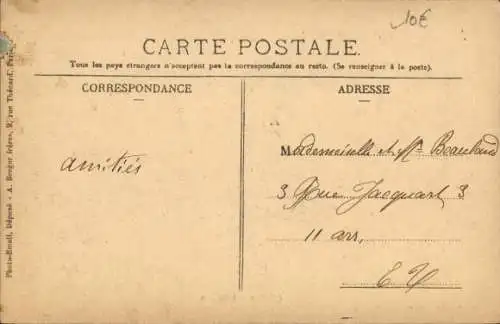 10€
CARTE POSTALE.
Tous les pays étrangers n'acceptent pas la correspondance au recto. (Se renseigner à la poste).
CORRESPONDANCE
ADRESSE
amitiés
Mademoiselle et Mr
3 Rue Jacquart 3
11 arr,
E V
Photo-Email, Déposé - A. Berger frères, 9, rue Thénard, Paris